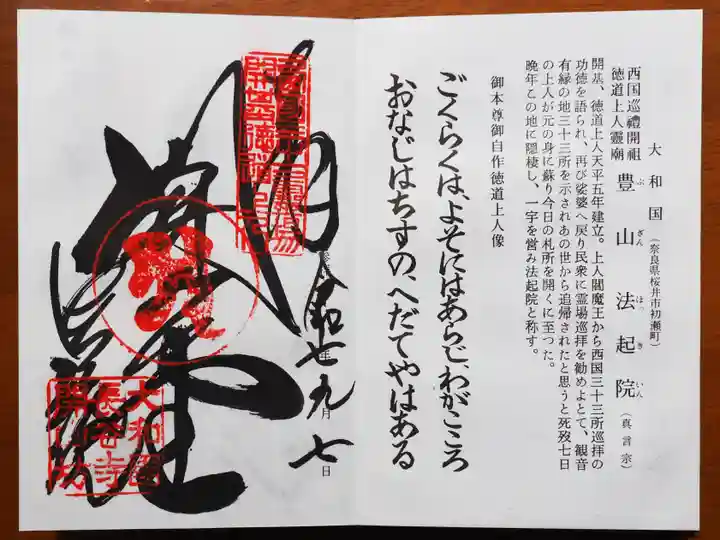 大和国(奈良県桜井市初瀬町)
西国巡禮開祖
徳道上人靈廟
豊山法起院(真言宗)
ぶざんほっきいん
開基、徳道上人天平五年建立。上人閻魔王から西国三十三所巡拝の
功徳を語られ、再び娑婆へ戻り民衆に霊場巡拝を勧めよとて、観音
有縁の地三十三所を示されあの世から追帰されたと思うと死歿七日
の上人が元の身に蘇り今日の札所を開くに至つた。
晩年この地に隠棲し、一宇を営み法起院と称す。
御本尊御自作徳道上人像
ごくらくは、よそにはあらじ、わがこころ
おなじはちすの、へだてやはある
令和七年九月七日
大和国
長谷寺
開山坊